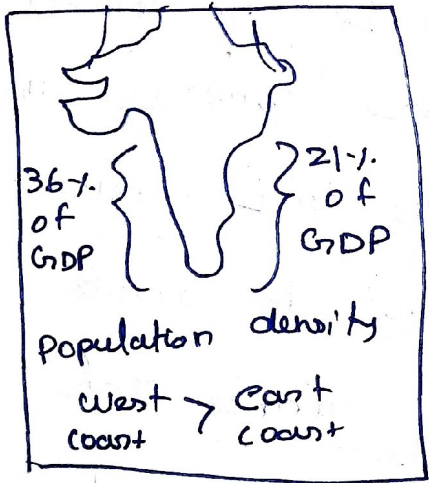 36%
of
GDP
21%
of
GDP
Population density
West > East
Coast Coast